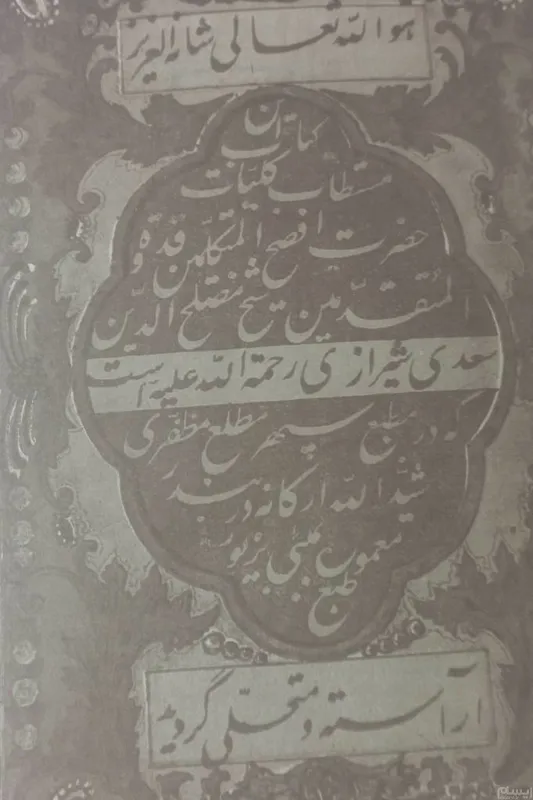 هو الله تعالی شانه العزیز
این
کتاب
مستطاب کلیات
حضرت افصح المتکلمین قدوة
المتقدمین شیخ مصلح الدین
سعدی شیرازی رحمة الله علیه است
که در مطبع سپهر مطلع مظفری
شید الله ارکانه در بندر
معمور بمبئی بزیور
طبع
آراسته و متحلی گردید